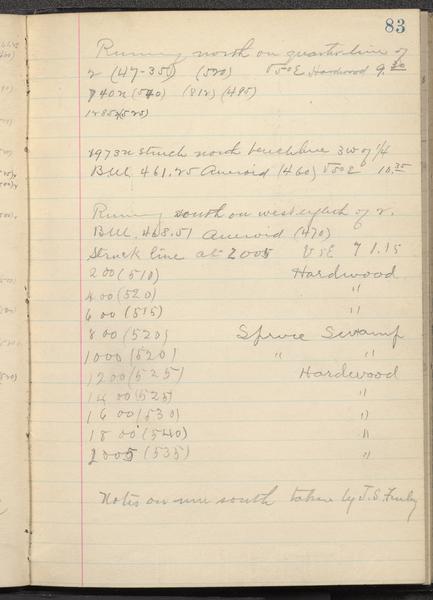 83
Running north on quarter line of
2 (47-35) (520) V50E Hardwood 9.30
740N (540) (812) (495)
1285 (525)
1973N Struck north bench line 3W of 1/4
B.M. 461.25 Aneroid (460) V50E 10.35
Running south on west eighth of 2.
B.M. 468.51 Aneroid (470)
Struck line at 2005 V5E 71.15
200 (510) Hardwood
400 (520) "
600 (515) "
800 (520) Spruce Swamp
1000 (520) " "
1200 (525) Hardwood
1400 (525) "
1600 (530) "
1800 (540) "
2005 (535) "
Notes on run south taken by J.S.